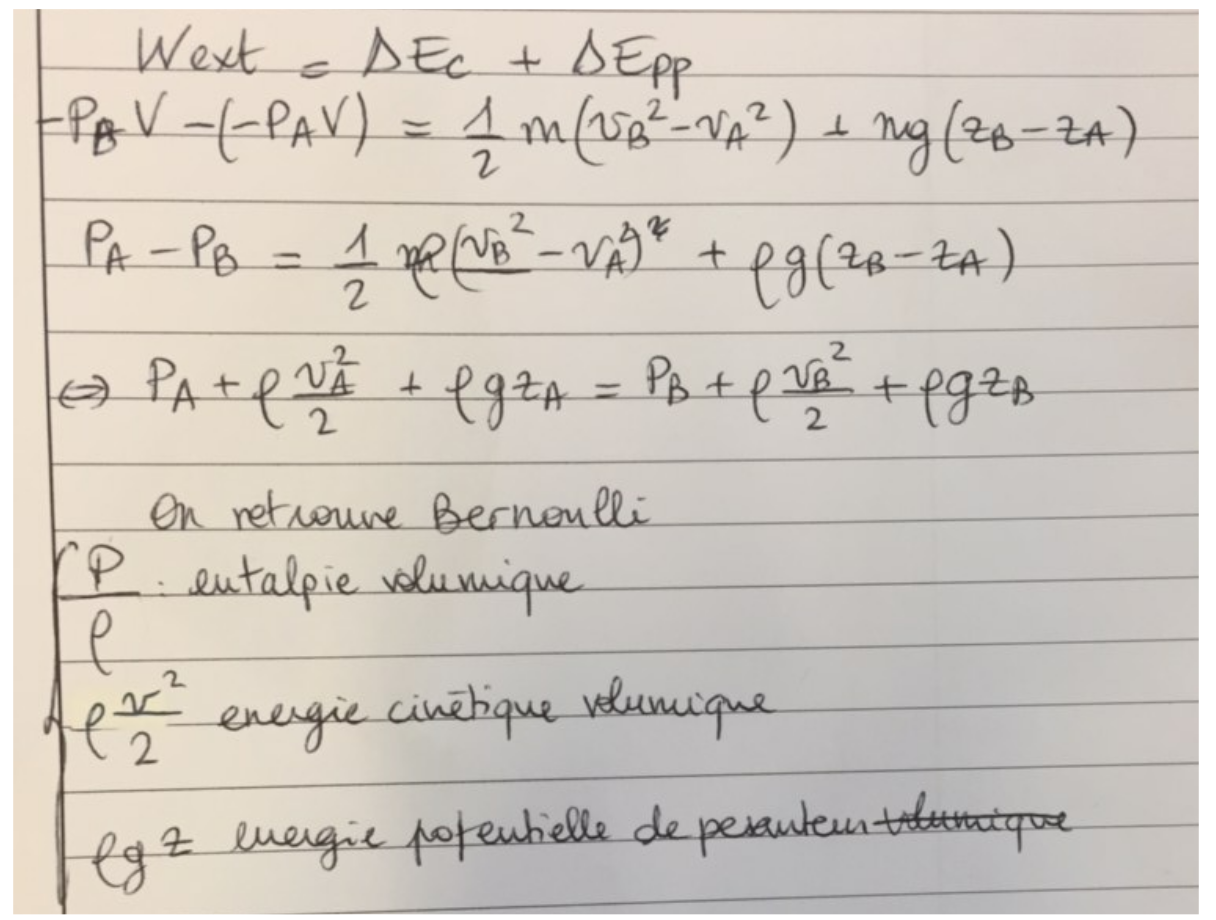 Wext = ΔEc + ΔEpp
-PB V - (-PAV) = 1/2 m(vB² - vA²) + mg(zB - zA)
PA - PB = 1/2 ρ(vB² - vA²) + ρg(zB - zA)
⇔ PA + ρ vA²/2 + ρgzA = PB + ρ vB²/2 + ρgzB
On retrouve Bernoulli
P/ρ : entalpie volumique
ρ v²/2 energie cinétique volumique
ρg z energie potentielle de pesanteur volumique